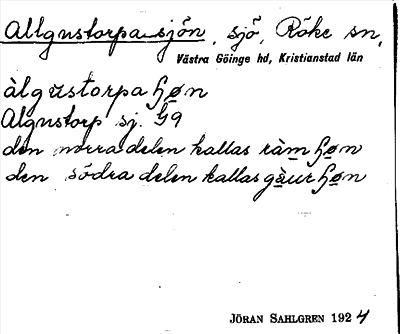 Allgustorpasjön, sjö, Röke sn,
Västra Göinge hd, Kristianstad län
àlgustorpa ɧøn
Algustorp sj. G9
den norra delen kallas ràm ɧøn
den södra delen kallas gàur ɧøn
JÖRAN SAHLGREN 1924